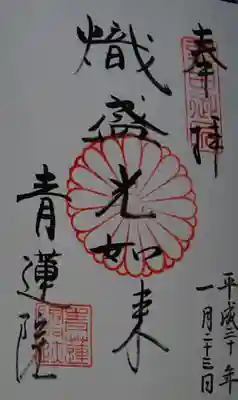 奉拝
熾盛光如来
青蓮院
平成三十年
一月二十三日